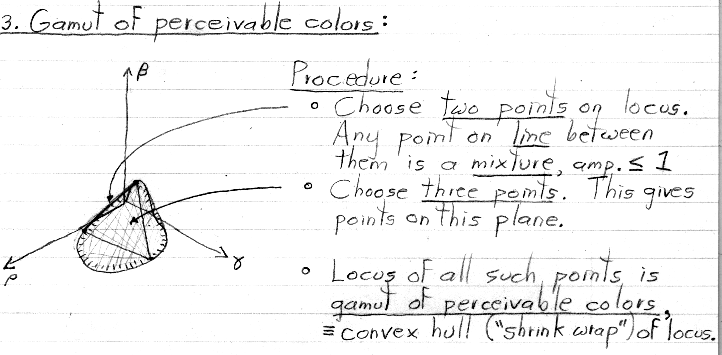 3. Gamut of perceivable colors:
β
ρ
γ
Procedure:
• Choose two points on locus.
Any point on line between
them is a mixture, amp. ≤ 1
• Choose three points. This gives
points on this plane.
• Locus of all such points is
gamut of perceivable colors,
≡ convex hull ("shrink wrap") of locus.